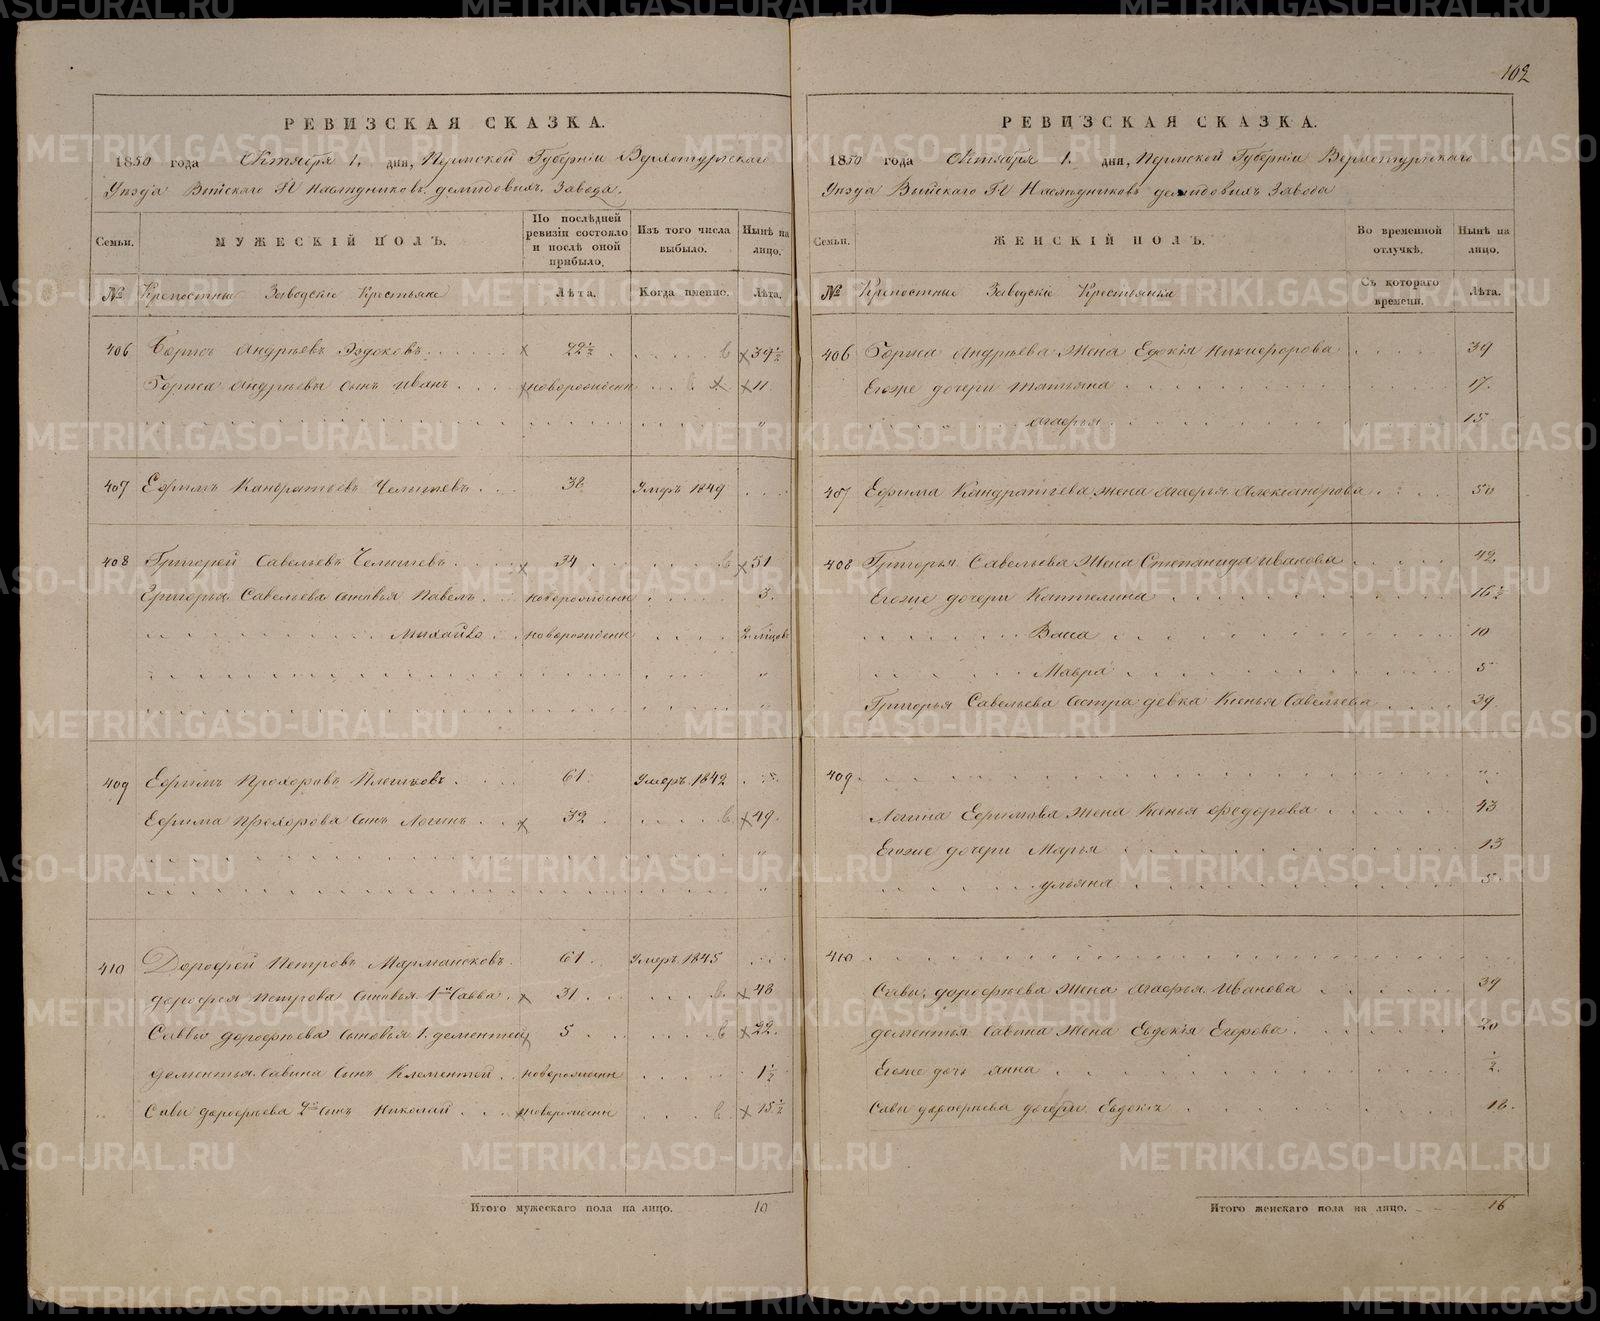 102
РЕВИЗСКАЯ СКАЗКА.
1850 года Октября 1. дня, Пермской Губерніи Верхотурскаго
Уѣзда Выйскаго Гг Наслѣдниковъ демидовыхъ Завода.
Семьи.
МУЖЕСКІЙ ПОЛЪ.
По послѣдней ревизіи состояло и послѣ оной прибыло.
Изъ того числа выбыло.
Нынѣ на лицо.
№ Крепостные Заводскіе Крестьяне Лѣта. Когда именно. Лѣта.
406 Борисъ Андрѣевъ 22½ 39½
Бориса Андрѣева Сынъ Иванъ новорожденн 11
407 Ефимъ Кандратьевъ Челышевъ 32 Умеръ 1849
408 Григорей Савельевъ Челышевъ 34 51
Григорья Савельева сыновья Павелъ новорожденн 3
Михайло новорожденн 2 мѣсяц
409 Ефимъ Прохоровъ Плешковъ 61 Умеръ 1842
Ефима Прохорова Сынъ Логинъ 32 49
410 Дорофей Петровъ 61 Умеръ 1845
дорофея Петрова Сыновья 1й Савва 31 48
Саввы дорофѣева Сыновья 1. дементей 5 22
дементья Савина Сынъ Клементей новорожденн 1½
Савы дорофѣева 2й Сынъ Николай новорожденн 15½
Итого мужескаго пола на лицо. 10
РЕВИЗСКАЯ СКАЗКА.
1850 года Октября 1. дня, Пермской Губерніи Верхотурскаго
Уѣзда Выйскаго Гг Наслѣдниковъ демидовыхъ Завода
Семьи.
ЖЕНСКІЙ ПОЛЪ.
Во временной отлучкѣ.
Нынѣ на лицо.
№ Крепостные Заводскіе Крестьянки Съ котораго времени. Лѣта.
406 Бориса Андрѣева Жена Едокія Никифорова 39
Егоже дочери Татьяна 17
Агафья 15
407 Ефима Кандратьева жена Агафья Александрова 50
408 Григорья Савельева Жена Степанида Иванова 42
Егоже дочери Каттелина 16½
Васа 10
Мавра 5
Григорья Савельева Сестра девка Ксенья Савельева 39
409
Логина Ефимова Жена Ксенья Федорова 43
Егоже дочери Марья 13
ульяна 5
410
Савы дорофѣева Жена Агафья Иванова 39
дементья Савина Жена Евдокія Егорова 20
Егоже дочь Анна ½
Савы дорофѣева дочери Евдокія 12
Итого женскаго пола на лицо. 16
METRIKI.GASO-URAL.RU